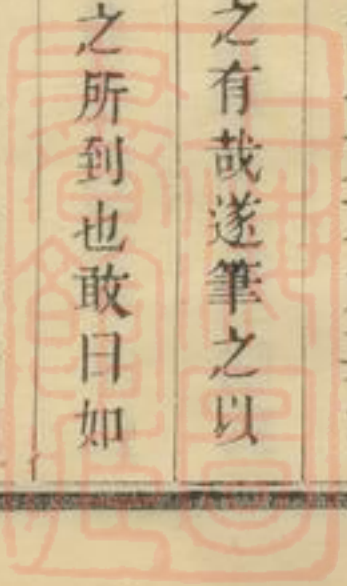 之有哉遂筆之以
之所到也敢曰如